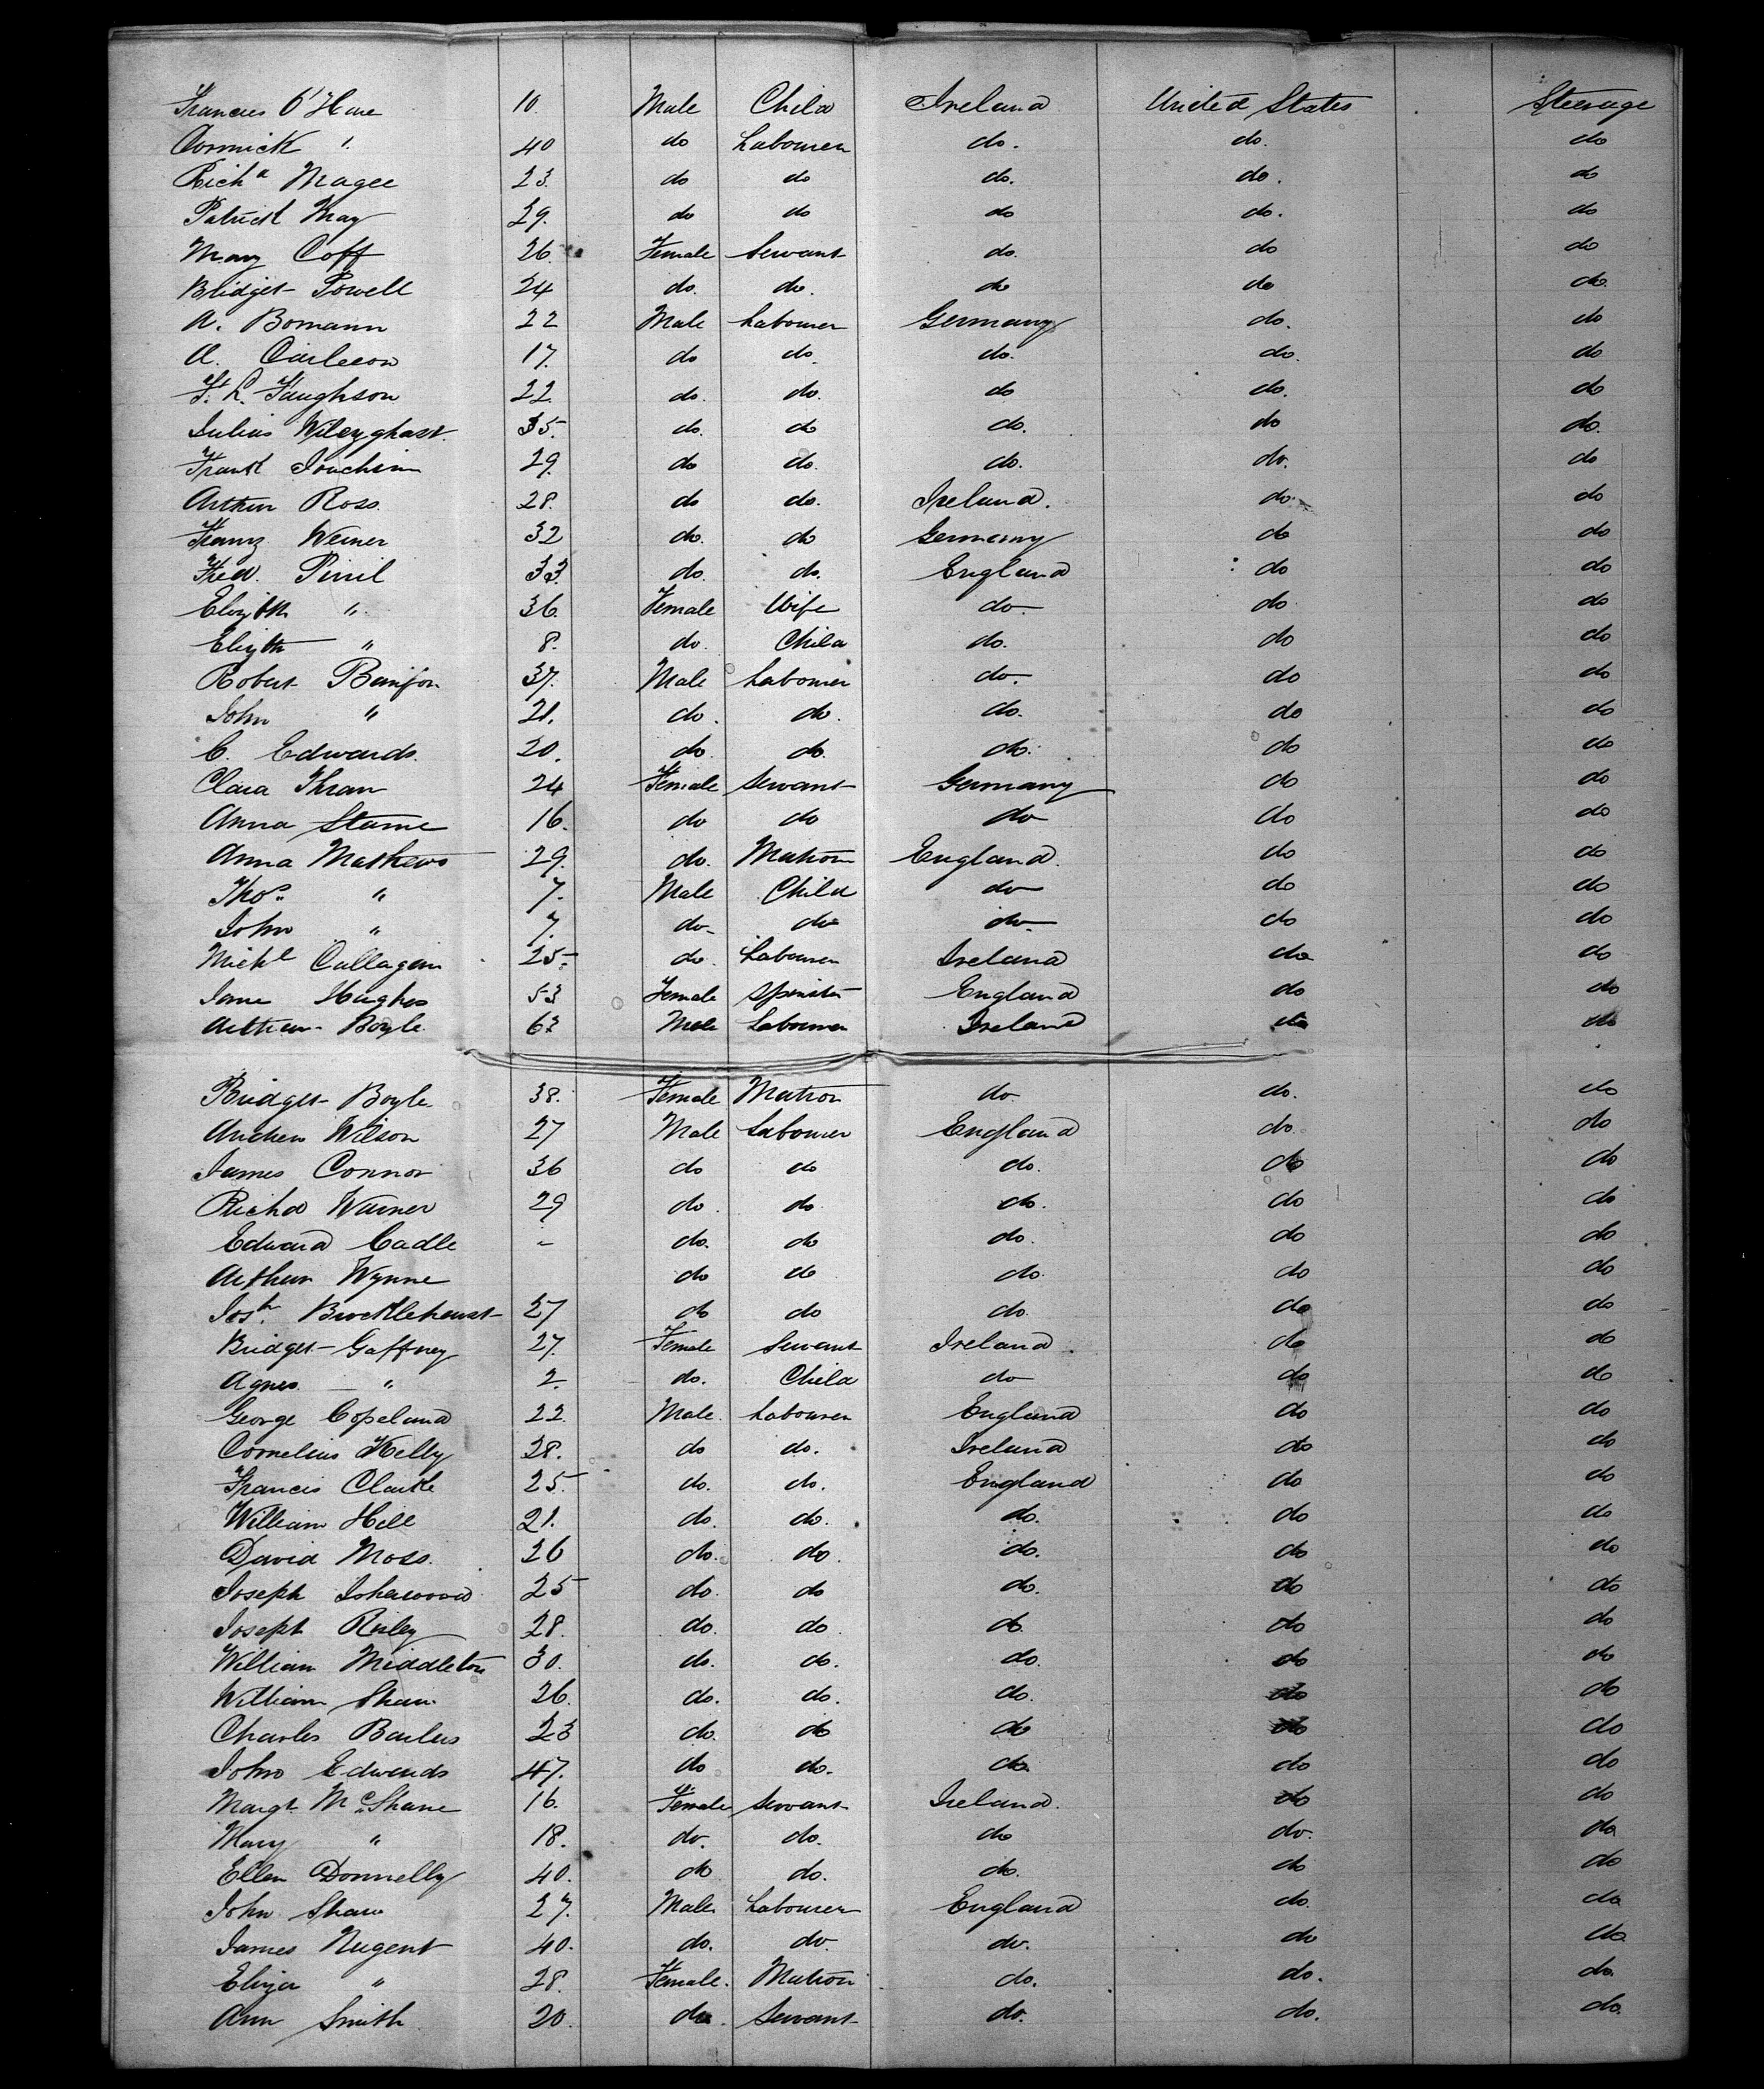 Frances O'Hare 10. Male Child Ireland United States Steerage
Cormick ". 40 do Labourer do. do. do
Richd Magee 23. do do do. do. do
Patrick May 29. do do do do. do
Mary Coff 26. Female Servant do. do do
Bridget Powell 24 do. do. do do do.
A. Bomann 22 Male Labourer Germany do. do
A. 17. do do. do. do. do
F. L. Faughson 22. do. do. do do. do
Julius 35. do. do do. do do.
Frank Joachim 29. do do. do. do. do
Arthur Ross. 28. do do. Ireland. do. do
Franz Werner 32 do. do Germany do do
Fred. 33. do. do. England do do
Elizbth ". 36. Female Wife do. do do
Elizth " 8. do. Child do. do do
Robert 37. Male Labourer do. do do
John " 21. do. do. do. do do
C. Edwards. 20. do. do. do. do do
Clara Thran 24 Female Servant Germany do do
Anna Stame 16. do do do do do
Anna Mathews 29. do. Matron England. do do
Thos. " 7. Male Child do do do
John " 7. do do do do do
Michl Callagan 25. do. Labourer Ireland do do
Jane Hughes 53 Female Spinster England do do
Arthur Boyle. 63 Male Labourer Ireland do do
Bridget Boyle 38. Female Matron do do. do
Andrew Wilson 27 Male Labourer England do. do
James Connor 36 do do do. do do
Richd Warner 29 do. do do. do do
Edward Cadle - do. do do. do do
Arthur Wynne do do do. do do
Josh. Brocklehurst 27 do do do. do do
Bridget Gaffney 27. Female Servant Ireland. do do
Agnes " 2. do. Child do do do
George Copeland 22. Male. Labourer England do do
Cornelius Kelly 28. do do. Ireland do do
Francis Clarke 25. do. do. England do do
William Hill 21. do. do. do. do do
David Moss. 26 do. do. do. do do
Joseph Isherwood 25 do. do do. do do
Joseph Riley 28. do. do. do. do do
William Middleton 30. do. do. do. do do
William Shaw 26. do. do. do. do do
Charles 23 do. do do do do
John Edwards 47. do do. do. do do
Margt. McShane 16. Female Servant Ireland. do do
Mary " 18. do. do. do do. do
Ellen Donnelly 40. do do. do. do do
John Shaw 27. Male Labourer England do. do
James Nugent 40. do. do. do. do do
Eliza " 28. Female. Matron do. do. do.
Ann Smith 20. do. Servant do. do. do.